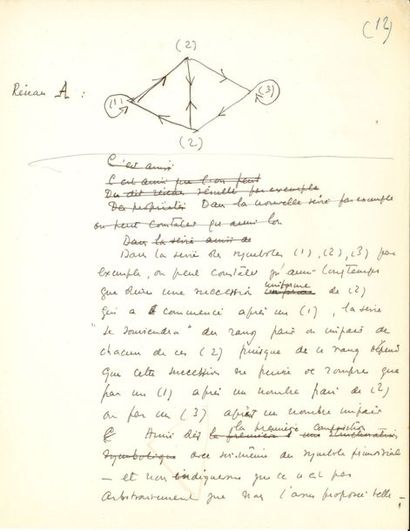 (12)
(2)
Réseau A :
(1)
(3)
(2)
C'est ainsi
C'est ainsi que l'on peut
On dit réseau par exemple
Des propriétés Dans la nouvelle série par exemple
on peut constater que
Dans la série
Dans la série des symboles (1), (2), (3) par
exemple, on peut constater qu'aussi longtemps
que dure une succession uniforme de (2)
qui a commencé après un (1), la série
"se souviendra" du rang pair ou impair de
chacun de ces (2) puisque de ce rang dépend
que cette succession ne puisse se rompre que
par un (1) après un nombre pair de (2)
ou par un (3) après un nombre impair
la première composition
Ainsi dès la première
symbolique avec soi-même du symbole primordial
– et nous indiquerons que ce n'est pas
arbitrairement que nous l'avons proposée telle –